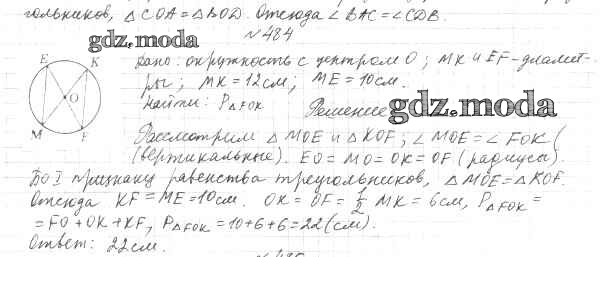 гольников, △COA = △BOD. Отсюда ∠BAC = ∠CDB.
№484
gdz.moda
Дано: окружность с центром O; MK и EF - диамет-
ры; MK = 12 см; ME = 10 см.
Найти: P△FOK
Решение
gdz.moda
E K
O
M F
Рассмотрим △MOE и △KOF; ∠MOE = ∠FOK (
(вертикальные). EO = MO = OK = OF (радиусы).
По I признаку равенства треугольников, △MOE = △KOF.
Отсюда KF = ME = 10 см. OK = OF = 1/2 MK = 6 см, P△FOK =
= FO + OK + KF, P△FOK = 10 + 6 + 6 = 22 (см).
Ответ: 22 см.